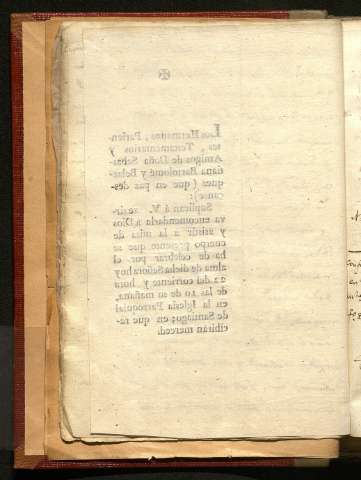 ✠
Los Hermanos, Parien-
tes, Testamentarios y
Amigos de Doña Sebas-
tiana Bartolomé y Belas-
quez (que en paz des-
canse):
Suplican á V. se sir-
va encomendarla á Dios
y asistir a la misa de
cuerpo presente que se
ha de celebrar por el
alma de dicha Señora hoy
22 del corriente y hora
de las 10 de su mañana,
en la Iglesia Parroquial
de Santiago; en que re-
cibirán merced.